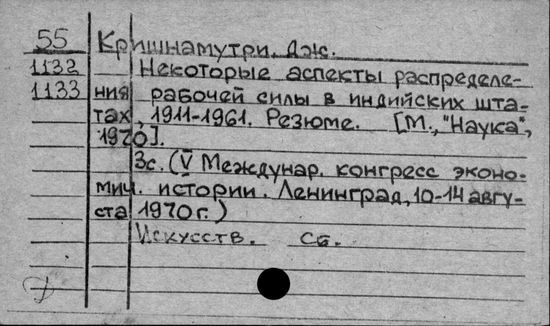 55 Кришнамутри. Дж.
1132 Некоторые аспекты распределе-
1133 ния рабочей силы в индийских шта-
тах, 1911-1961. Резюме. [М., "Наука",
1970].
3с. (V Междунар. конгресс эконо-
мич. истории. Ленинград, 10-14 авгу-
ста 1970 г.)
Искусств. сб.